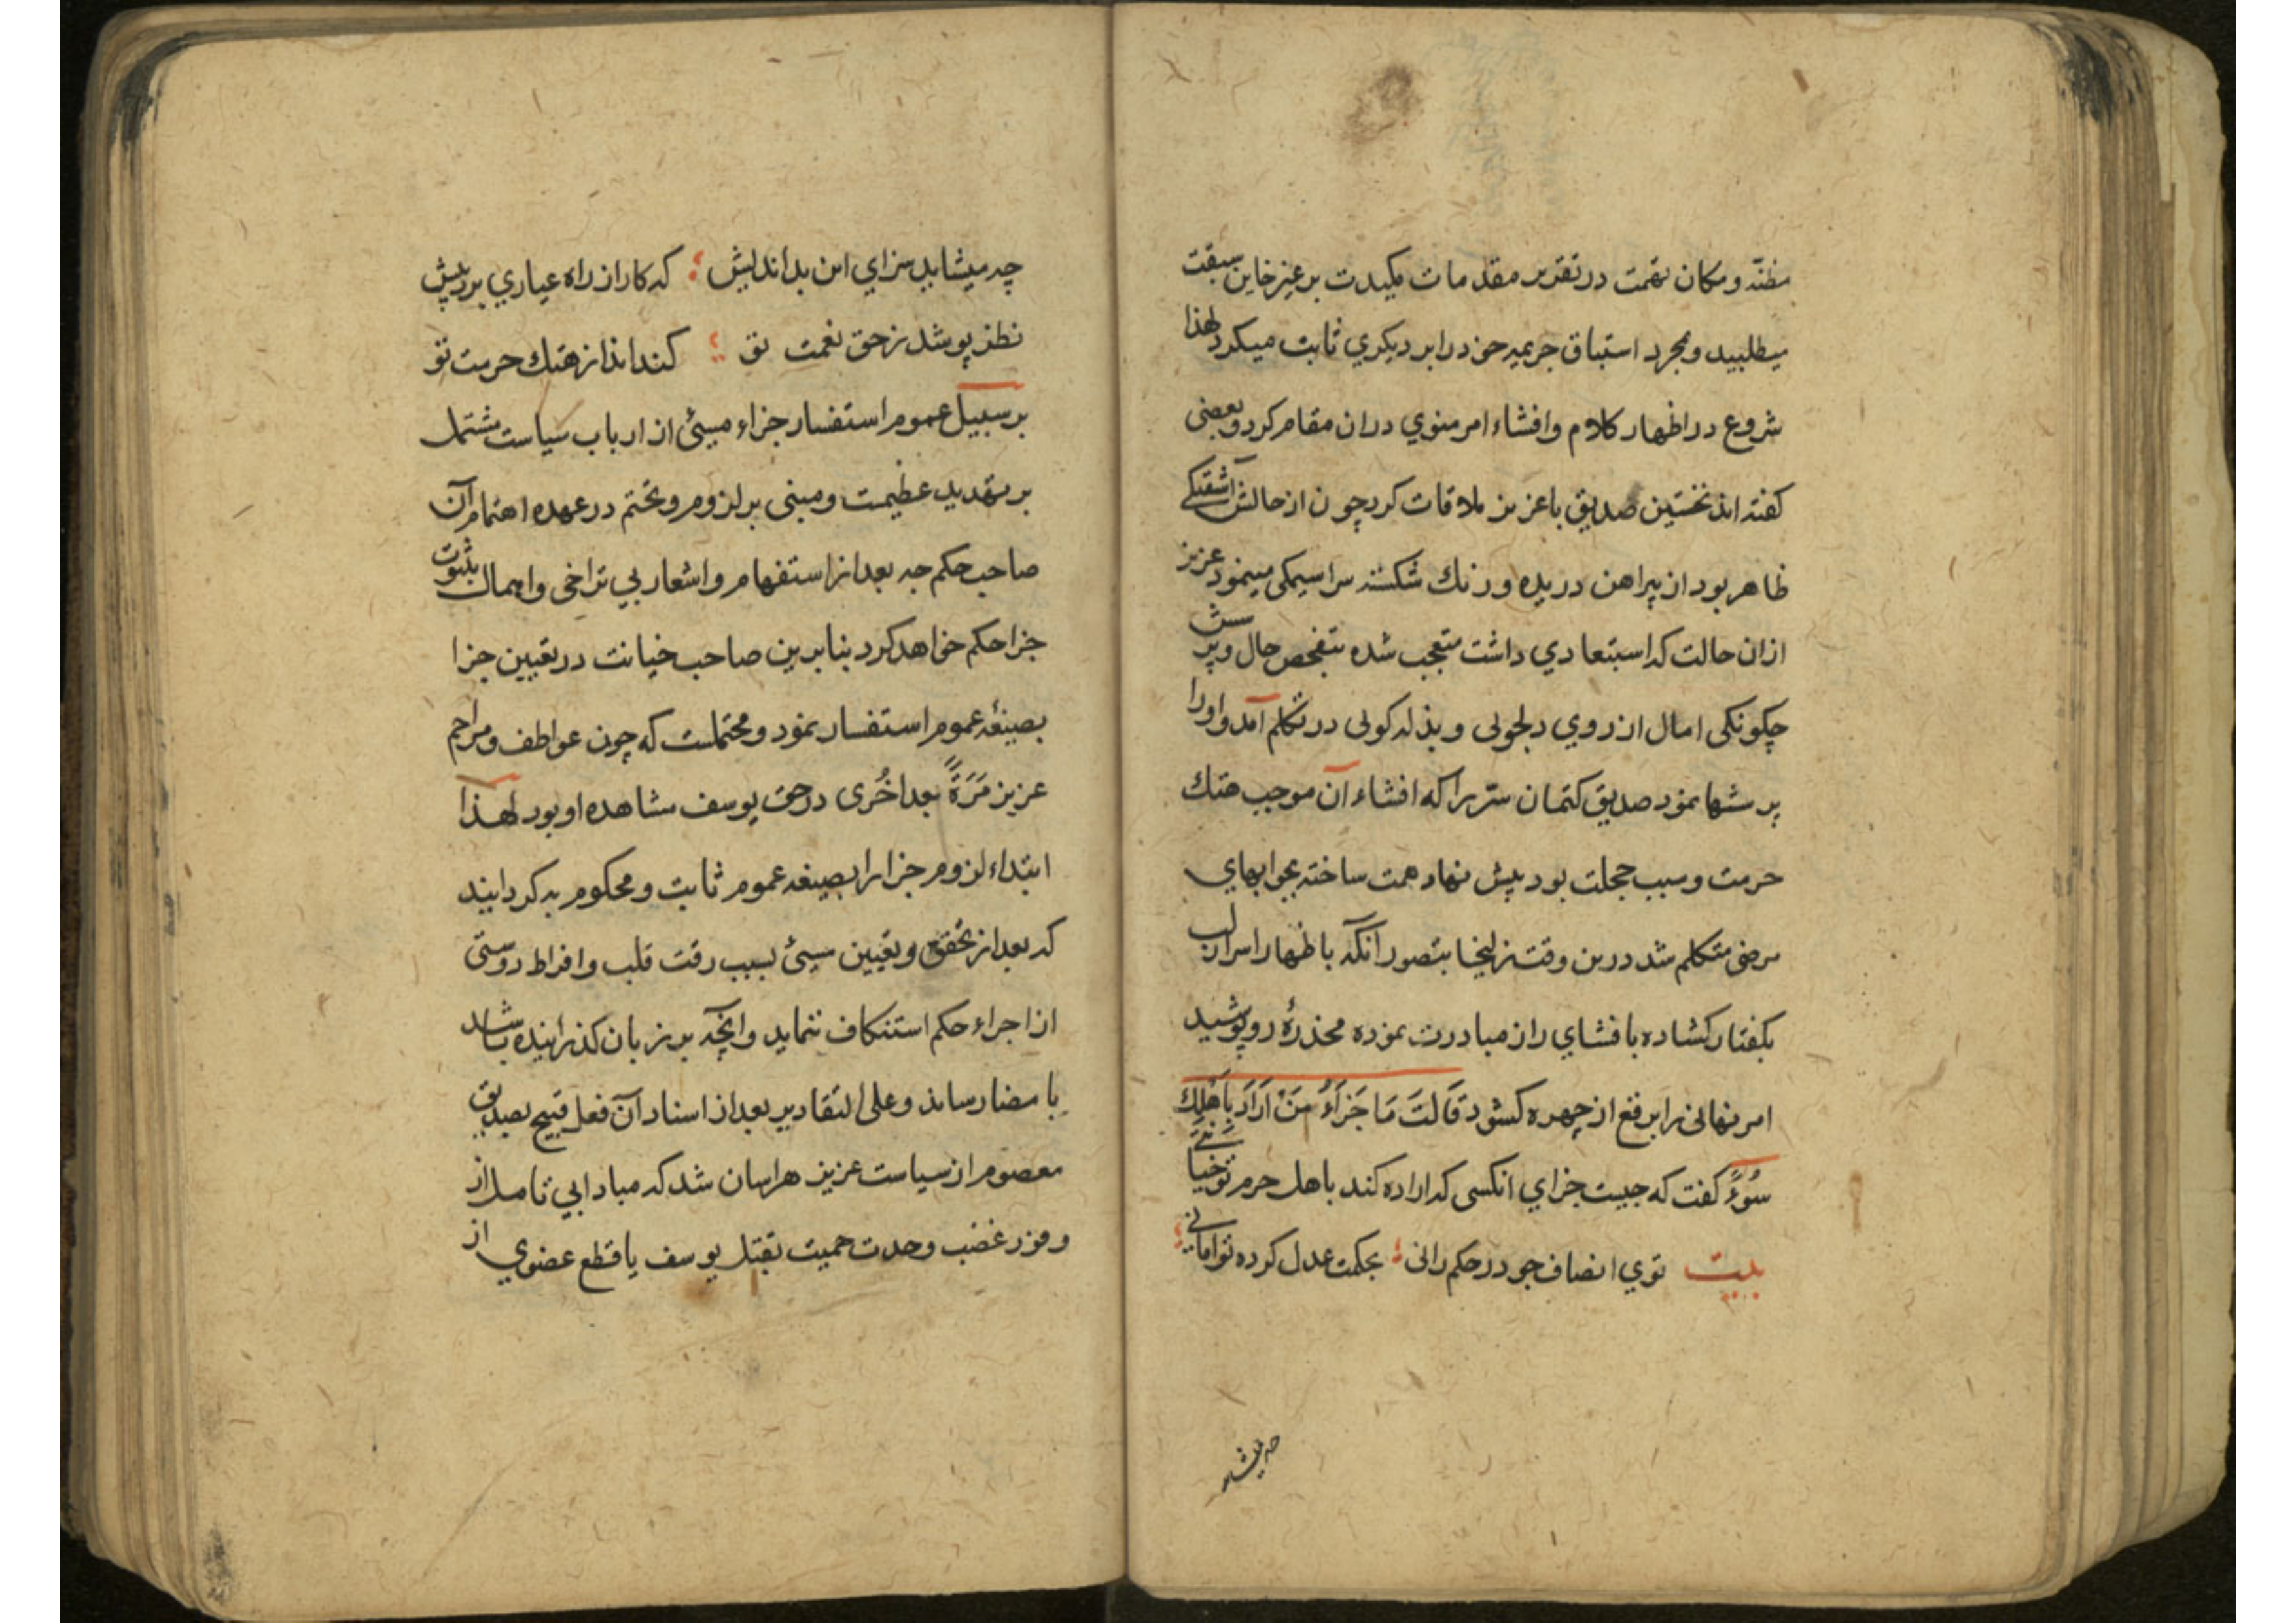 مظنّه ومکان تهمت در تقدیر مقدمات مکیدت بر عزیز خاین سبقت
میطلبید وبمجرد استباق جریمه خود را بر دیکری ثابت میکرد لهذا
شروع در اظهار کلام وافشاء امر منوی دران مقام کرد وبعضی
کفته اند نخستین صدیق با عزیز ملاقات کرد چون از حالش آشفتکی
ظاهر بود از پیراهن دریده ورنك شکسته سراسیمکی مینمود عزیز
ازان حالت که استبعادی داشت متعجب شده بتفحص حال وپرسش
چکونکی امال از روی دلجوئی وبذله کوئی در تکلم آمد واورا
پرسشها نمود صدیق کتمان سرّیرا که افشاء آن موجب هتك
حرمت وسبب خجلت بود پیش نهاد همت ساخته بجوابهای
مرضی متکلم شد درین وقت زلیخا بتصور آنکه با ظهار اسرار لب
بکفتار کشاده بافشای راز مبادرت نموده مخدرهٔ روپوشید
امر نهانی را برقع از چهره کشود قَالَتْ مَا جَزَاءُ مَنْ اَرَادَ بِاَهْلِكَ
سُوءً کفت که چیست جزای انکسی که اراده کند باهل حرم تو خیانتی
بیت توی انصاف جو در حکم رانی ؛ بحکمت عدل کرده توامانی ؛
چه میشاید
چه میشاید سزای این بد اندیش ؛ که کار از راه عیاری برد پیش
نظر پوشد ز حق نعمت تو ؛ کند اندازهتك حرمت تو
بر سبیل عموم استفسار جزاء مسیئ از ارباب سیاست مشتمل
بر تهدید عظیمت ومبنی بر لزوم وتختم در عهده اهتمام آن
صاحب حکم چه بعد از استفهام واشعار بی تراخی واهمال بثبوت
جزا حکم خواهد کرد بنابرین صاحب خیانت در تعیین جزا
بصیغهٔ عموم استفسار نمود ومحتملست که چون عواطف ومراحم
عزیز مَرَةً بعد اخُری در حق یوسف مشاهده او بود لهذا
ابتداء لزوم جزا را بصیغه عموم ثابت ومحکوم به کردانید
که بعد از تحقق وتعیین مسیئ بسبب رقت قلب وافراط دوستی
از اجراء حکم استنکاف ننماید وانچه بر زبان کذرانیده باشد
با مضا رساند وعلی التقادیر بعد از اسناد آن فعل قبیح بصدیق
معصوم از سیاست عزیز هراسان شد که مبادا بی تامل از
وفور غضب وحدت حمیت بقتل یوسف یا قطع عضوی از